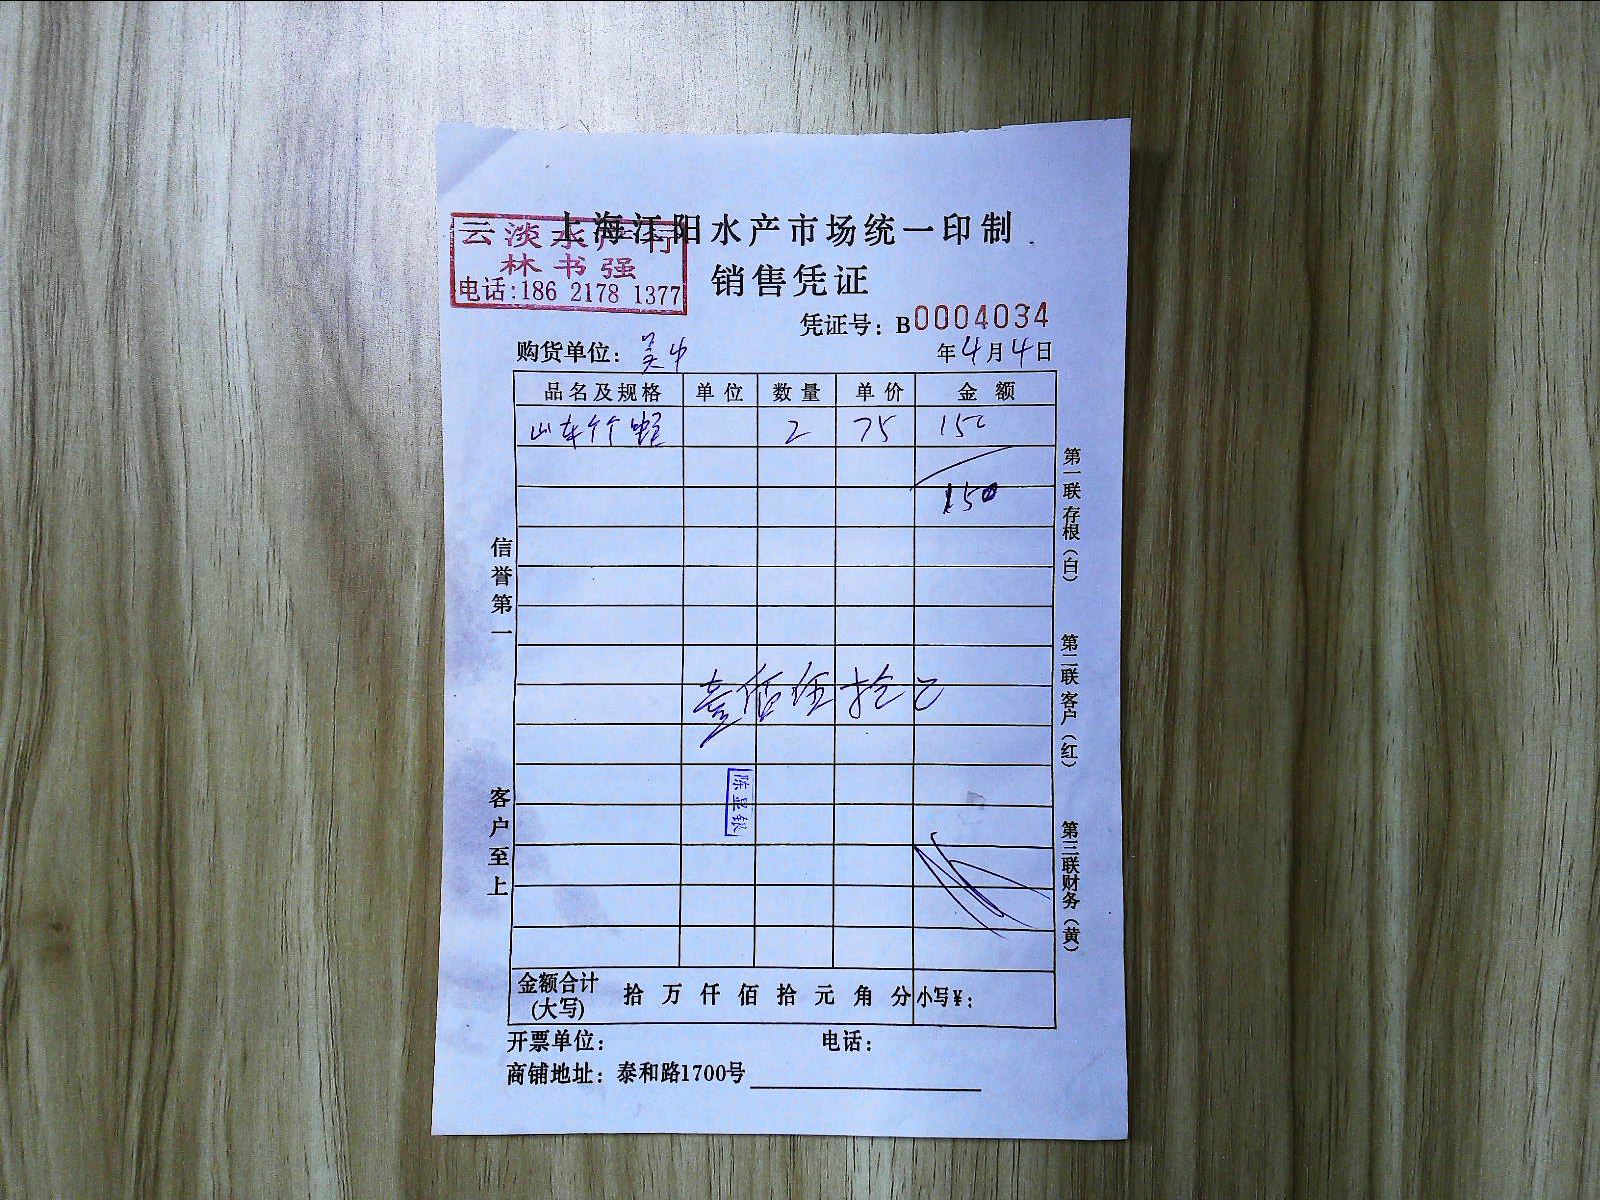 上海江阳水产市场统一印制
云淡水产行
林书强
电话:186 2178 1377
销售凭证
凭证号：B0004034
购货单位：
年4月4日
品名及规格 单位 数量 单价 金额
山东竹蛏 2 75 150
150
壹佰伍拾元
陈显银
信誉第一
客户至上
第一联存根（白）
第二联客户（红）
第三联财务（黄）
金额合计(大写) 拾 万 仟 佰 拾 元 角 分 小写¥：
开票单位： 电话：
商铺地址：泰和路1700号